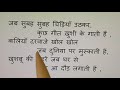 जब सुबह सुबह चिड़ियाँ उठकर,
कुछ गीत खुशी के गाती हैं।
कलियाँ दरवाजे खोल खोल
जब दुनिया पर मुस्काती हैं,
खुशबू की जब घर से
आ दौड़ लगाती हैं,